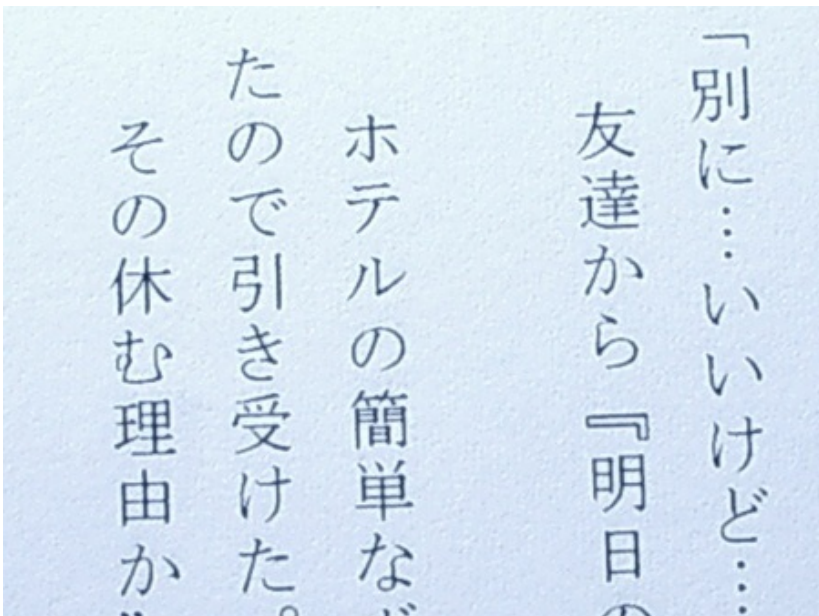 「別に…いいけど…
友達から『明日の
ホテルの簡単な
たので引き受けた。
その休む理由が